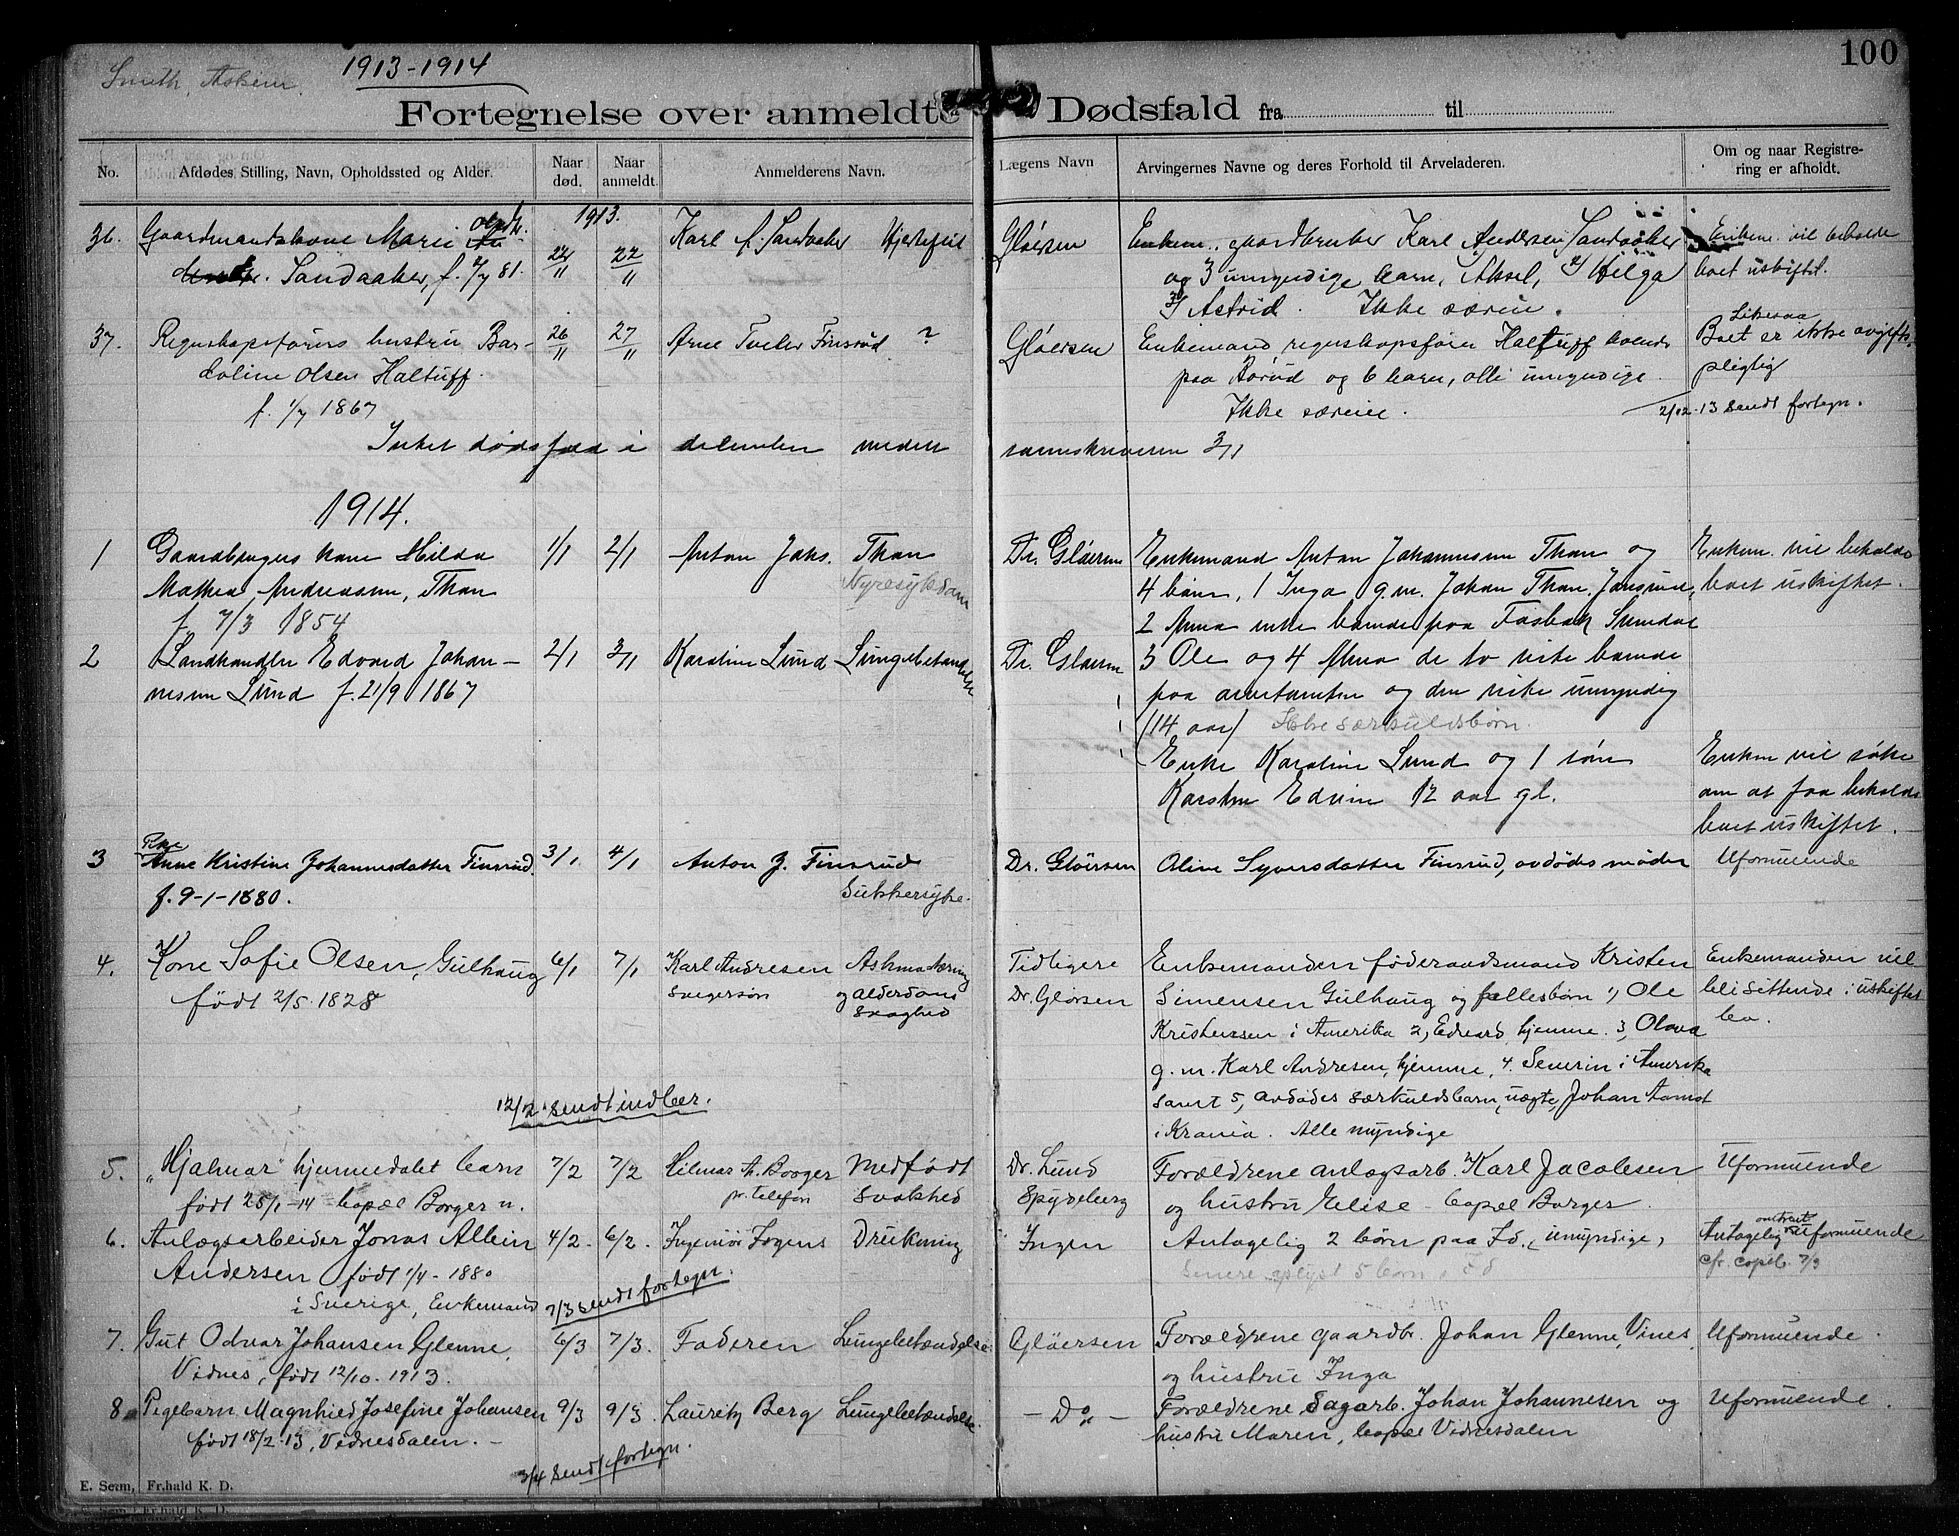 Smith, Askim.
1913-1914
100
Fortegnelse over anmeldte Dødsfald fra til
No.
Afdødes Stilling, Navn, Opholdssted og Alder.
Naar død.
Naar anmeldt.
Anmelderens Navn.
Lægens Navn
Arvingernes Navne og deres Forhold til Arveladeren.
Om og naar Registrering er afholdt.
1913.
36. Gaardmandskone Marie Olsdtr. 24/11 22/11 Karl A. Sandaaker Hjertefeil Gløersen Enkem., gaardbruker Karl Andersen Sandaaker Enkem. vil beholde
Sandaaker, f. 2/7 81. og 3 umyndige barn, Aksel, 2) Helga boet uskiftet.
3) Astrid. Ikke særeie.
37. Regnskapsførers hustru Bar- 26/11 27/11 Arne Tveter Finsrud ? Gløersen Enkemand regnskapsfører Haltuff boende Likesaa Boet er ikke avgifts-
boline Olsen Haltuff. paa Korud og 6 barn, alle umyndige. pligtig
f. 1/7 1867 Ikke særeie. 2/12-13 sendt fortegn.
Intet dødsfald i desember meldt sorenskriveren 3/1
1914.
1 Gaardbrugers kone Hilda 1/1 2/1 Anton Johs. Thon Dr. Gløersen Enkemand Anton Johannesen Thon og Enkem. vil beholde
Mathea Andreasen, Thon Nyresykdom 4 børn, 1 Inga g.m. Johan Thon. Jonsrud, boet uskiftet.
f 7/3 1854 2 Anna ikke boende paa Fosbak Sundal
2 Landhandler Edvard Johan- 2/1 3/1 Karoline Lund Lungebetændelse Dr. Gløersen 3 Ole og 4 Anna de to siste boende
nesen Lund f. 21/9 1867 paa arvetomten og den siste umyndig
(14 aar) Ikke særkuldsbørn.
Enke Karoline Lund og 1 søn Enken vil søke
Karsten Edvin 12 aar gl. om at faa beholde
boet uskiftet.
3 Pike Anne Kristine Johannesdatter Finsrud. 3/1 4/1 Anton J. Finsrud Dr. Gløersen Oline Syversdatter Finsrud, avdødes moder Uformuende
f. 9-1-1880. Sukkersyke.
4. Kone Sofie Olsen, Gulhaug 6/1 7/1 Karl Andresen Askmatæring Tidligere Enkemanden føderaadsmand Kristen Enkemanden vil
født 2/5 1828 Svigersøn og Alderdoms Dr. Gløersen Simensen Gulhaug og fællesbørn 1) Ole bli sittende i uskiftet
Svaghed Kristensen i Amerika 2, Edvard hjemme. 3, Olava bo.
g. m. Karl Andresen, hjemme, 4. Severin i Amerika
samt 5, avdødes særkuldsbarn, uægte, Johan Aamot
12/2 sendt indber. i Krania. Alle myndige
5. "Hjalmar" hjemmedøbt barn 7/2 7/2 Hilmar A. Borger Medfødt Dr. Lund Forældrene anlægsarb. Karl Jacobsen Uformuende
født 25/1-14 - bopæl Borger n. pr. telefon Svakhed Spydeberg og hustru Elise - bopæl Borger.
6. Anlægsarbeider Jonas Albin 4/2 - 6/2. Ingeniør Fogens Drukning Ingen Antagelig 2 børn paa Fd., umyndige, Antagelig uformuende
Andersen født 1/4 - 1880 Senere oplyst 5 børn cfr. copb. 7/3
i Sverige, Enkemand 7/3 sendt fortegn.
7. Gut Odvar Johansen Glenne, 6/3 7/3. Faderen Lungebetændelse Gløersen Forældrene gaardbr. Johan Glenne, Vines, Uformuende.
Vidnes, født 12/10. 1913. og hustru Inga
8. Pigebarn Magnhild Josefine Johansen 9/3 9/3 Lauritz Berg Lungebetændelse. - Do - Forældrene Sagarb. Johan Johannesen og Uformuende.
født 18/2 13, Vidnesdalen. - hustru Maren, bopæl Vidnesdalen
3/4 Sendt fortegn.
E. Sem, Fr.hald K. D.